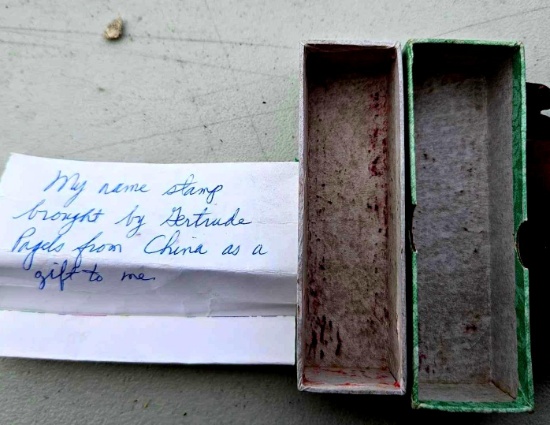 My name stamp
brought by Gertrude
Pagels from China as a
gift to me